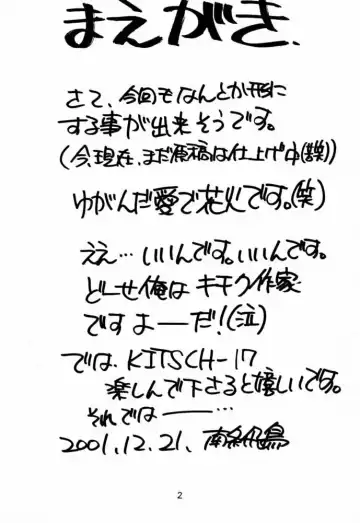 まえがき.
さて、今回もなんとか形に
する事が出来そうです。
(今、現在、まだ原稿は仕上げ中(誤))
ゆがんだ愛で花火です。(笑)
ええ…いいんです。いいんです。
どーせ俺はキチク作家
ですよーだ!(泣)
では、KITSCH-17
楽しんで下さると嬉しいです。
それではー…
2001.12.21. 南条飛鳥
2